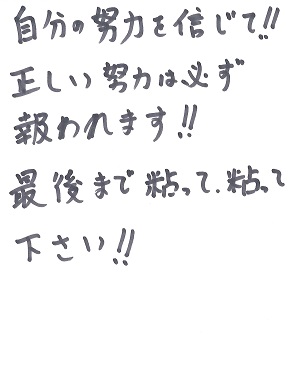 自分の努力を信じて!!
正しい努力は必ず
報われます!!
最後まで粘って、粘って
下さい!!